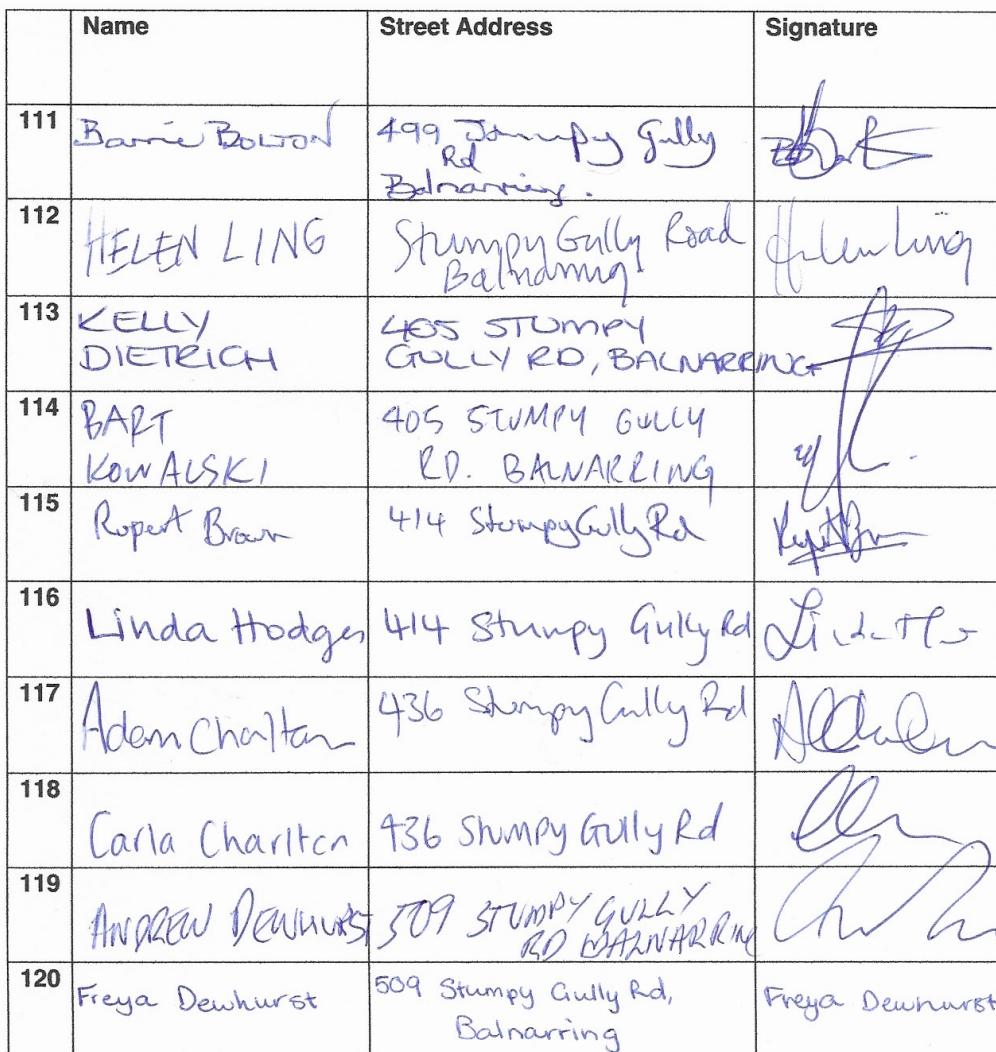 Name Street Address Signature
111 Barrie BOLTON 499 Stumpy Gully
Rd
Balnarring.
112 HELEN LING Stumpy Gully Road
Balnarring
Helen Ling
113 KELLY
DIETRICH
405 STUMPY
GULLY RD, BALNARRING
114 BART
KOWALSKI
405 STUMPY GULLY
RD. BALNARRING
115 Rupert Brown 414 Stumpy Gully Rd
116 Linda Hodges 414 Stumpy Gully Rd
117 Adam Charlton 436 Stumpy Gully Rd
118 Carla Charlton 436 Stumpy Gully Rd
119 ANDREW DEWHURST 509 STUMPY GULLY
RD BALNARRING
120 Freya Dewhurst 509 Stumpy Gully Rd,
Balnarring
Freya Dewhurst